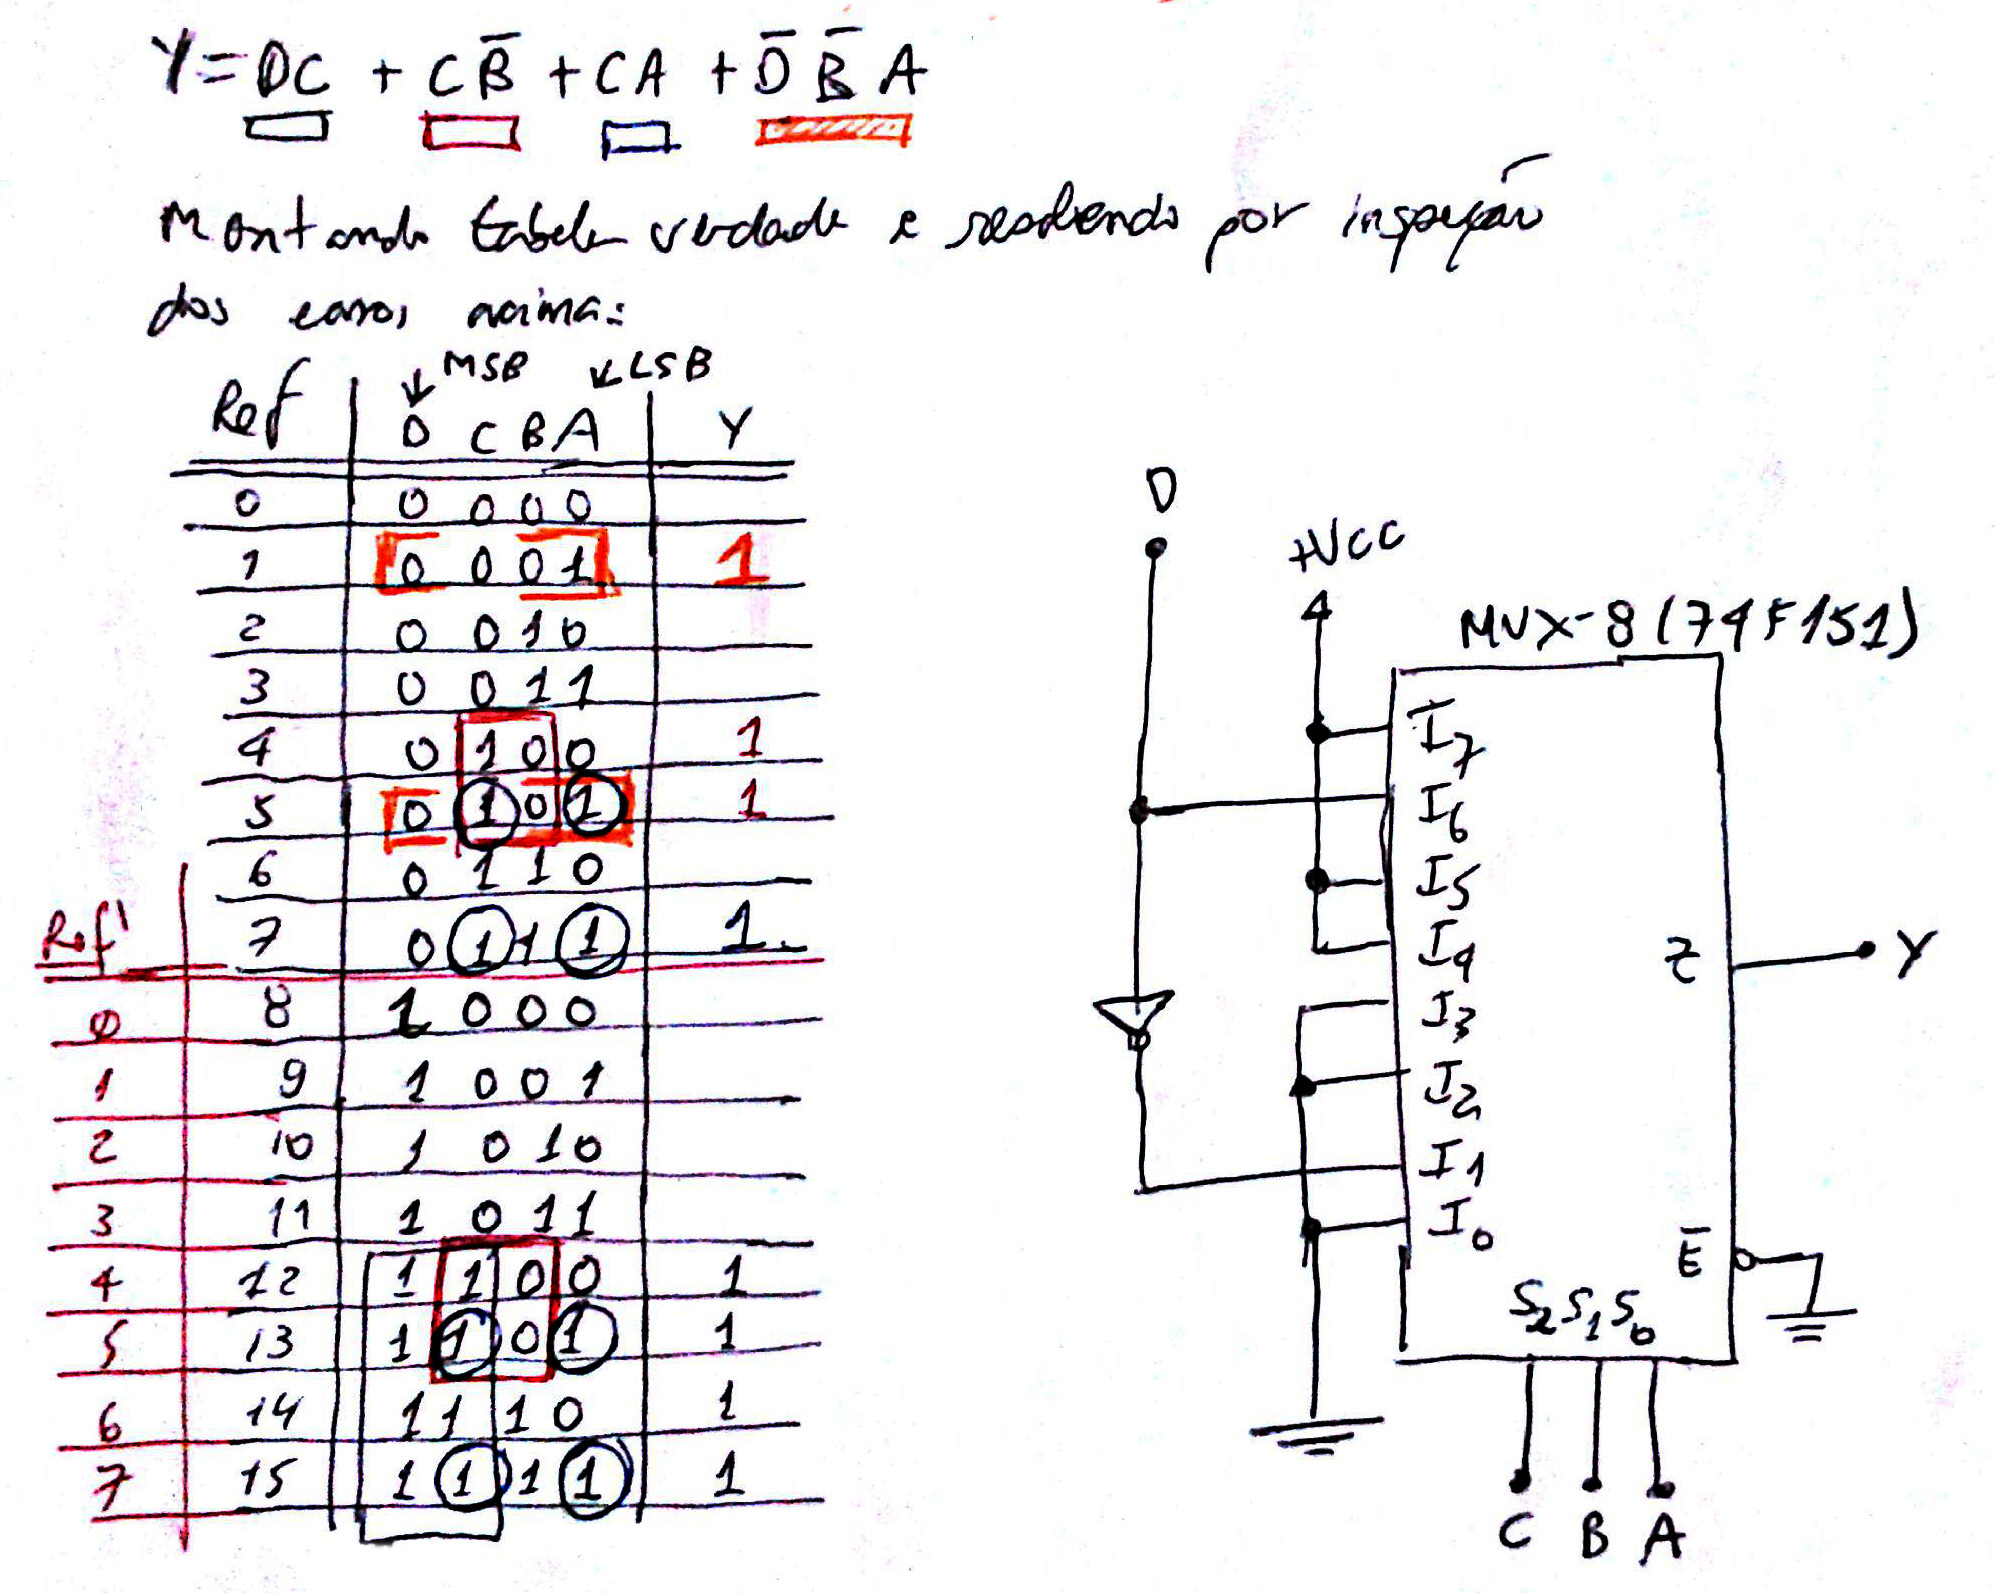 Y = DC + CB̅ + CA + D̅ B̅ A
Montando tabela verdade e resolvendo por inspeção
dos casos acima:
↓ MSB ↙ LSB
Ref D C B A Y
0 0 0 0 0
1 0 0 0 1 1
2 0 0 1 0
3 0 0 1 1
4 0 1 0 0 1
5 0 1 0 1 1
6 0 1 1 0
Ref'
7 0 1 1 1 1
0 8 1 0 0 0
1 9 1 0 0 1
2 10 1 0 1 0
3 11 1 0 1 1
4 12 1 1 0 0 1
5 13 1 1 0 1 1
6 14 1 1 1 0 1
7 15 1 1 1 1 1
D
+VCC
MUX-8 (74F151)
I7
I6
I5
I4
I3
I2
I1
I0
Z
Y
E̅
S2 S1 S0
C B A